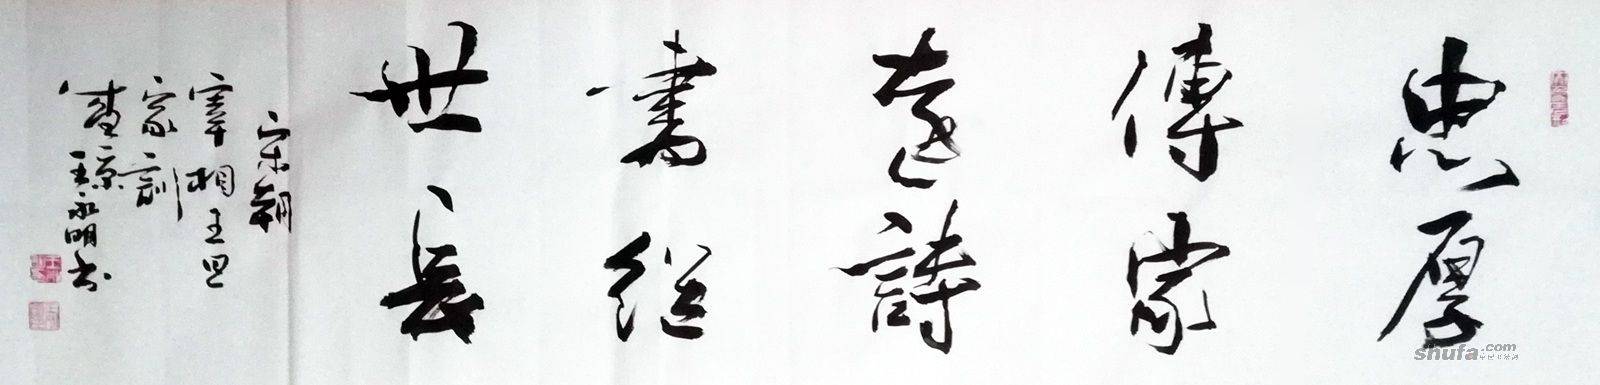 忠厚
傳家
遠詩
書繼
世長
宋朝
宰相王旦
家訓
王永明書
shufa.com